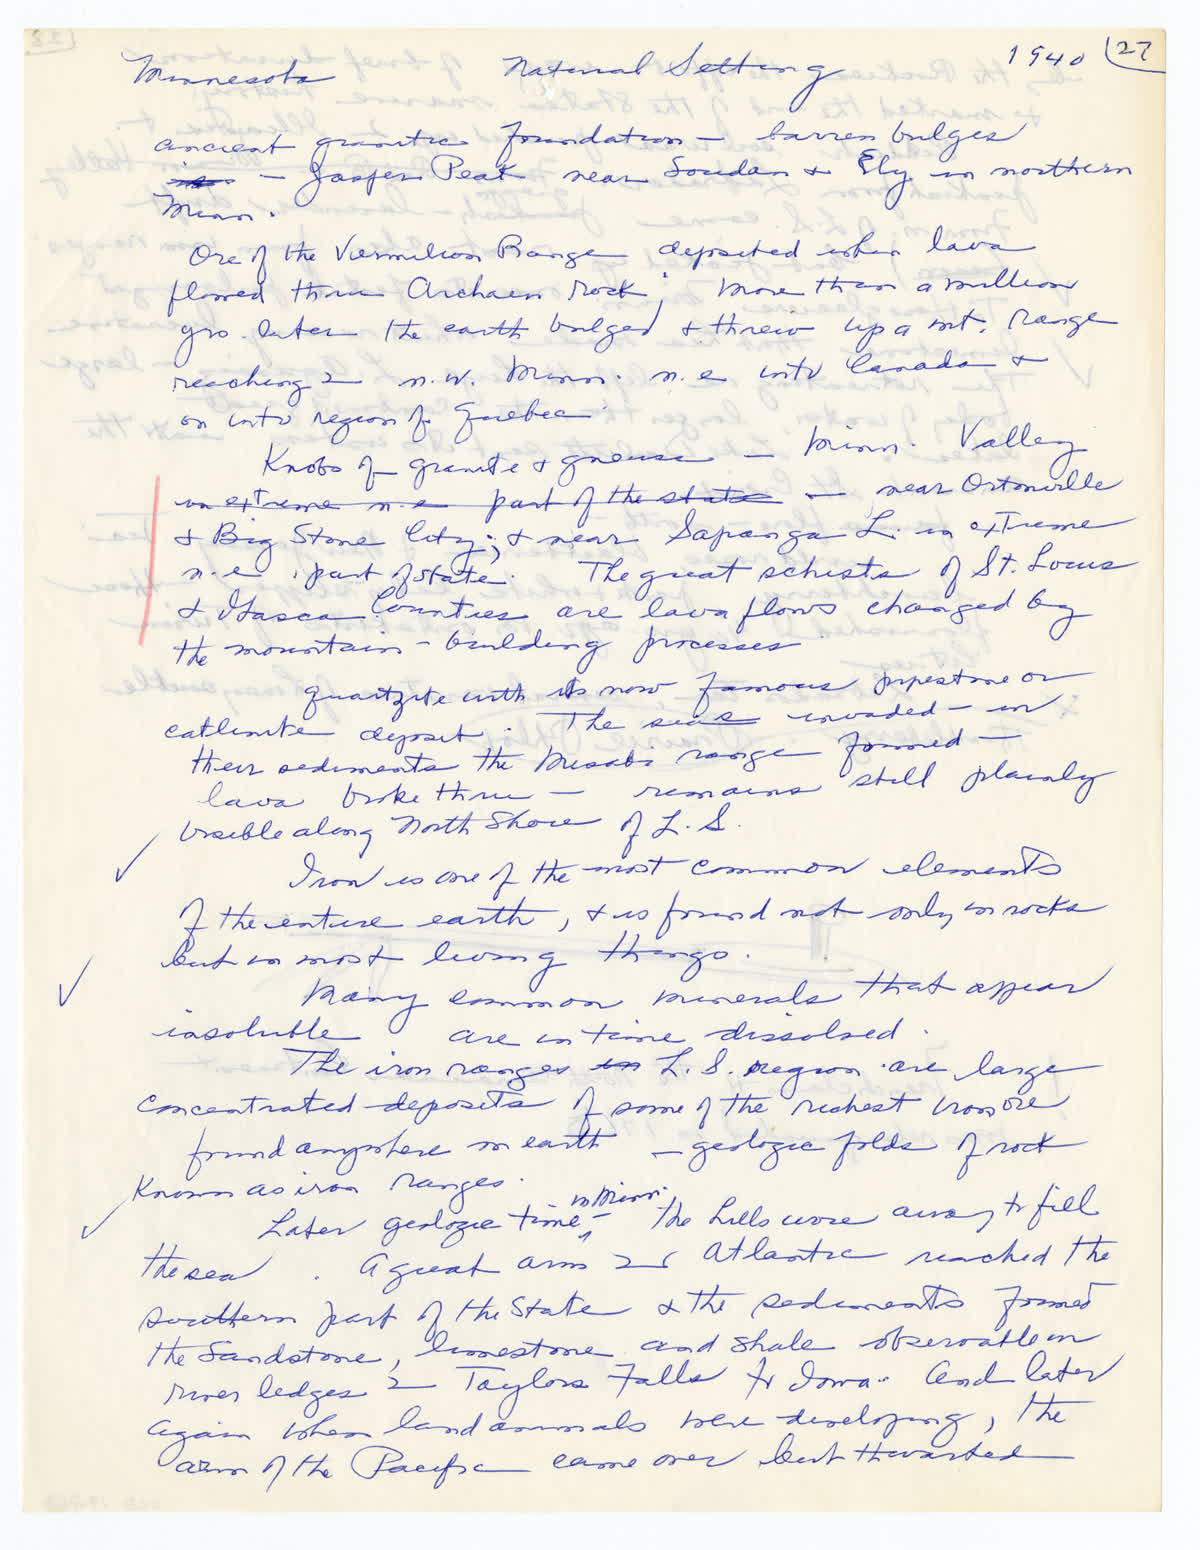 Minnesota Natural Setting 1940 27
ancient granitic foundation — barren bulges
— Jasper Peak near Soudan & Ely in northern
Minn.
Ore of the Vermilion Range deposited when lava
flowed thru Archaen rock; more than a million
yrs. later the earth bulged & threw up a mt. range
reaching n.w. Minn. n.e into Canada &
on into region of Quebec.
Knobs of granite & gneuss — Minn. Valley
in extreme n.e part of the state — near Ortonville
& Big Stone City; & near Sapanga L. in extreme
n.e. part of state. The great schists of St. Louis
& Itasca Counties are lava flows changed by
the mountain-building processes
quartzite with its now famous pipestone or
catlinite deposit. The seas invaded — in
their sediments the Mesabi range formed —
lava broke thru — remains still plainly
visible along North Shore of L. S.
Iron is one of the most common elements
of the entire earth, & is found not only in rocks
but in most living things.
Many common minerals that appear
insoluble are in time dissolved.
The iron ranges in L. S. region are large
concentrated deposits of some of the richest iron ore
found anywhere on earth — geologic folds of rock
known as iron ranges.
Later geologic time, in Minn. — the hills wore away to fill
the sea. A great arm of Atlantic reached the
southern part of the State & the sediments formed
the sandstone, limestone and shale observable in
river ledges Taylors Falls to Iowa. And later
again when land animals were developing, the
arm of the Pacific came over but thwarted